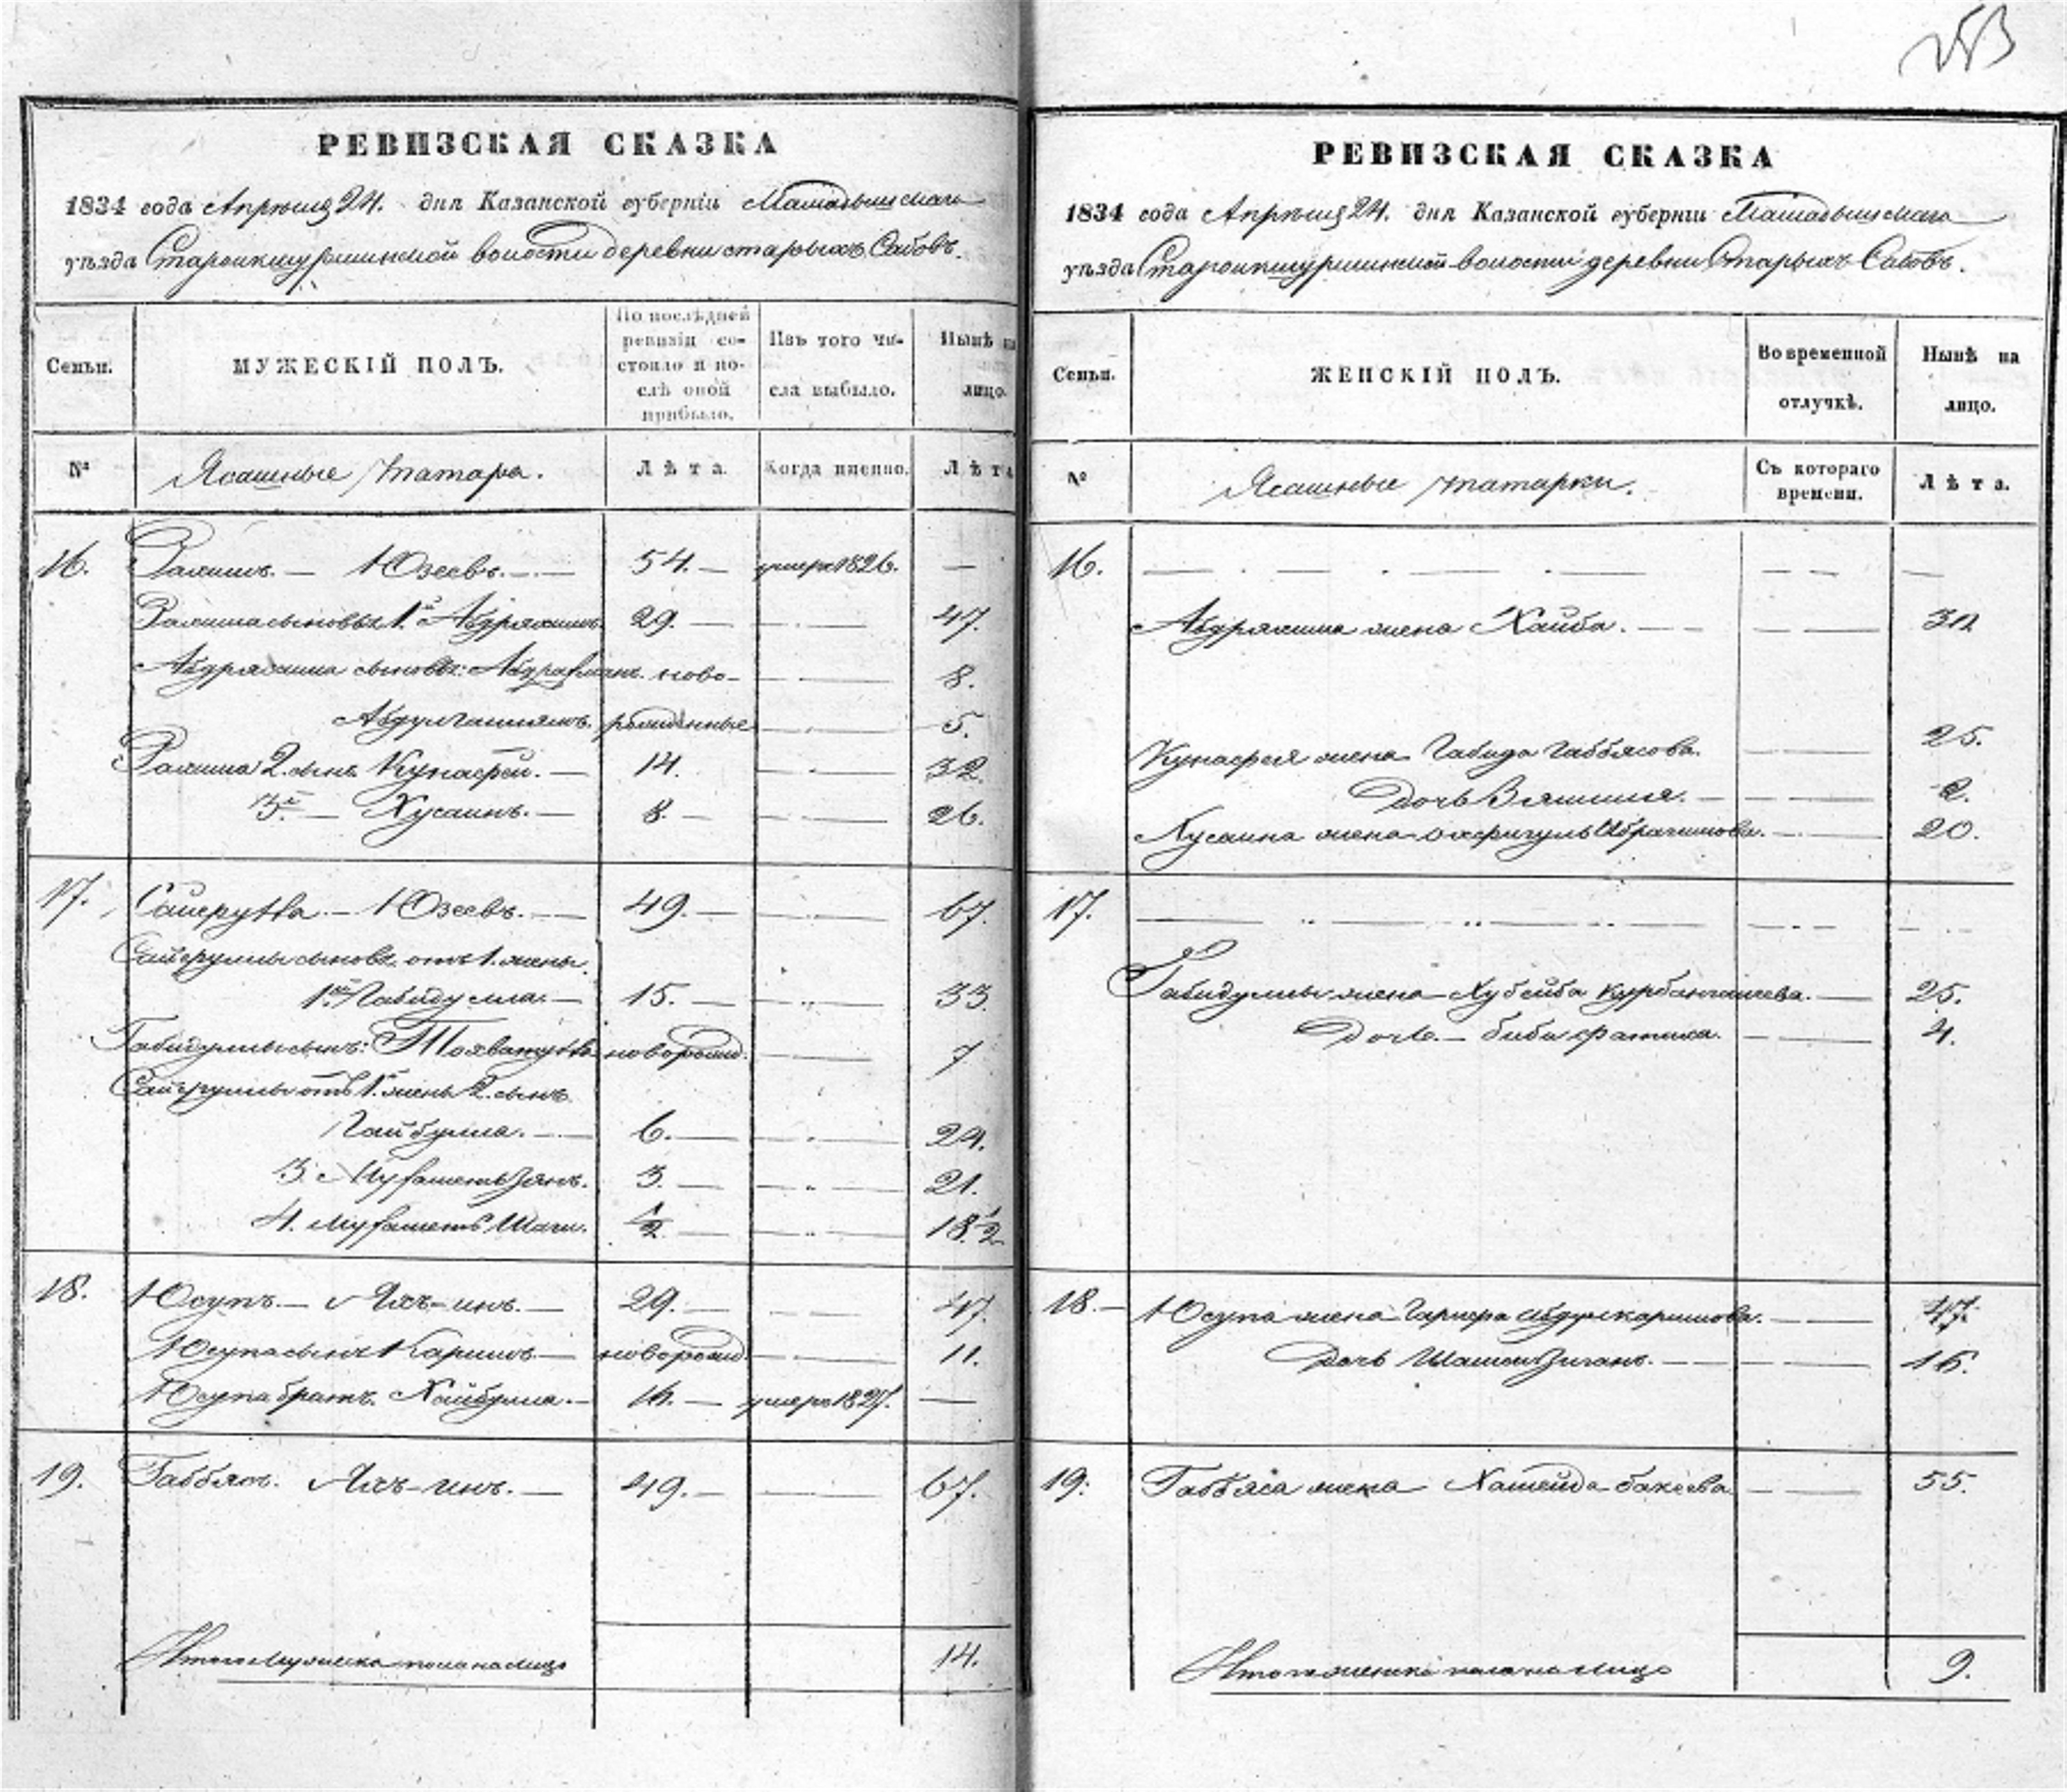 253
РЕВИЗСКАЯ СКАЗКА
1834 года Апрѣля 24. дня Казанской губерніи Мамадышскаго
уѣзда Староикшурминской волости деревни старыхъ Сабовъ.
Семьи.
МУЖЕСКІЙ ПОЛЪ.
По послѣдней ревизіи состояло и послѣ оной прибыло.
Изъ того числа выбыло.
Нынѣ на лицо.
№
Ясашные татара.
Лѣта.
Когда именно.
Лѣта
16. Рахимъ. — Юзеевъ. — 54. — умеръ 1826. —
Рахима сыновья 1й Абдряхимъ. 29. — 47.
Абдряхима сыновья: Абдрафманъ. ново- 8.
рожденные 5.
Рахима 2. сынъ Кунафей. — 14. 32.
3й — Хусаинъ. — 8. — 26.
17. — Юзеевъ. — 49. — 67.
сыновья отъ 1. жены.
1й Габидулла. — 15. — 33.
Габидуллы сынъ: новорожд. 7
отъ 1й жены 2. сынъ
6. — 24.
3. 3. — 21.
4. ½ — 18½
18. Юсупъ. — 29. — 47.
Юсупа сынъ Каримъ. — новорожд. 11.
Юсупа братъ. Хайбулла. — 16. — умеръ 1827. —
19. Габбясъ. 49. — 67.
Итого мужеска пола на лицо 14.
РЕВИЗСКАЯ СКАЗКА
1834 года Апрѣля 24. дня Казанской губерніи Мамадышскаго
уѣзда Староикшурминской волости деревни Старыхъ Сабовъ.
Семьи.
ЖЕНСКІЙ ПОЛЪ.
Во временной отлучкѣ.
Нынѣ на лицо.
№
Ясашные татарки.
Съ котораго времени.
Лѣта.
16.
Абдряхима жена Хайба. —
Кунафея жена Габида Габбясова. 25.
Дочь — 2.
Хусаина жена Ибрагимова. — 20.
17.
Габидуллы жена Хубейба — 25.
Дочь. — биби фатима. 4.
18. — Юсупа жена Абдулкаримова. — 47.
Дочь — 16.
19. Габбяса жена бакеева 55.
Итого женска пола на лицо 9.